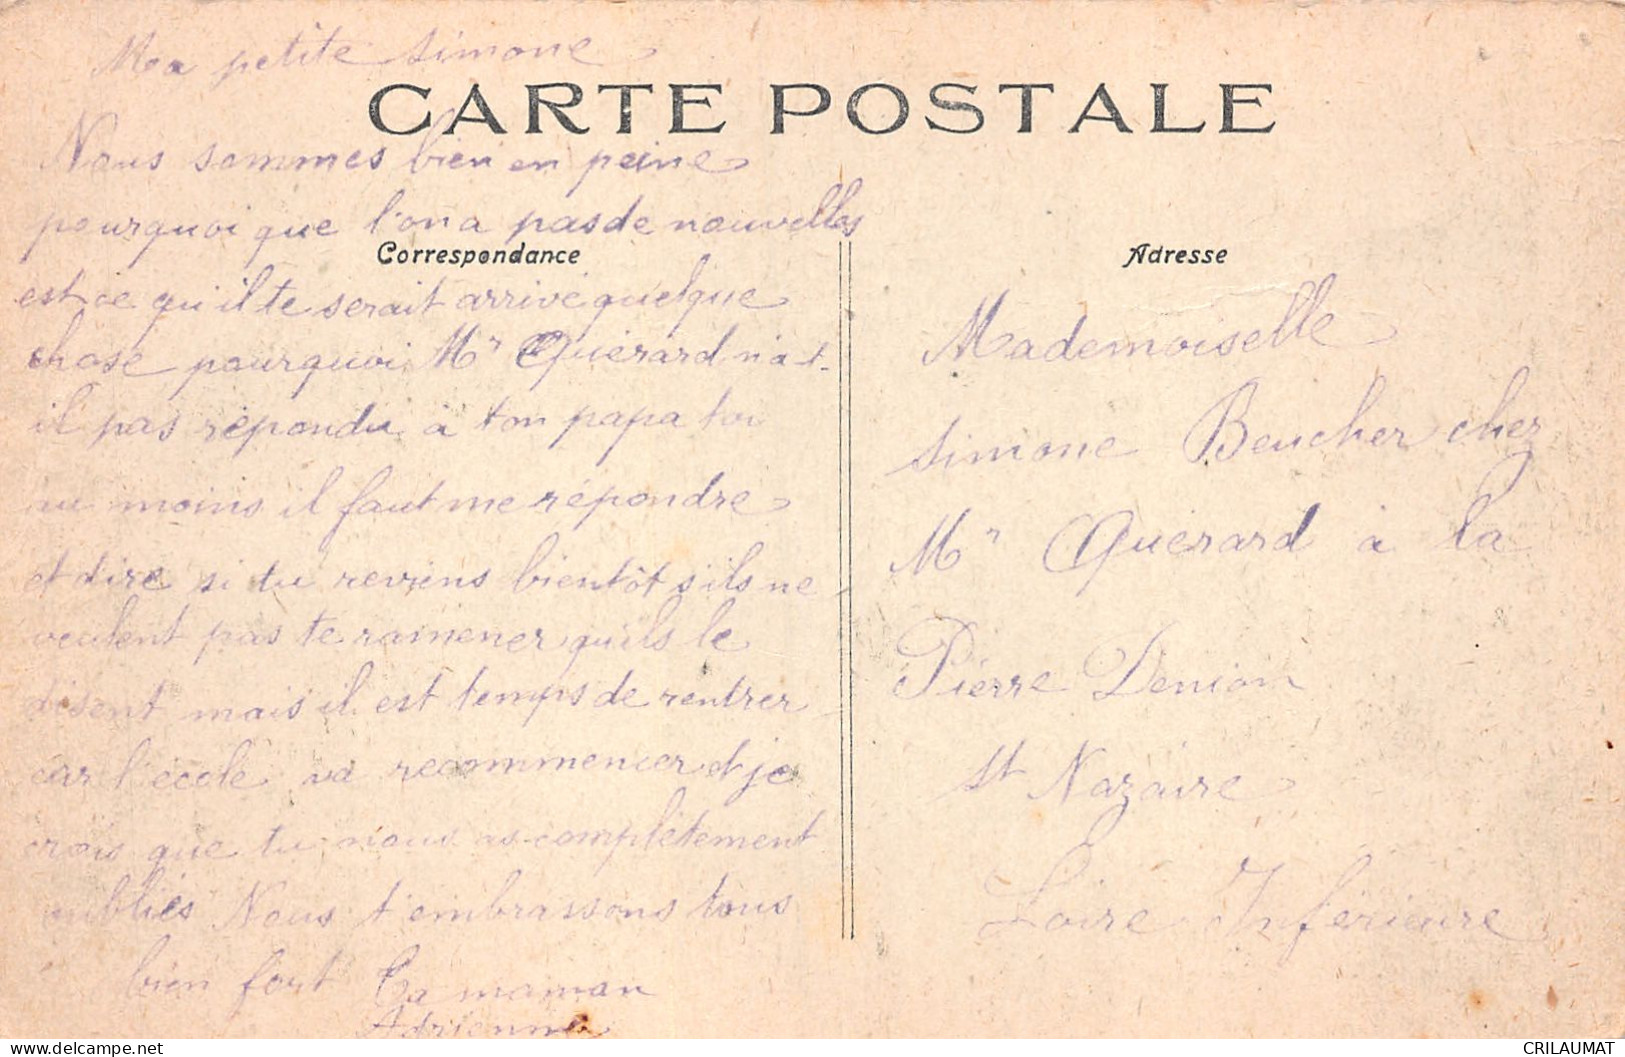 Ma petite simone
CARTE POSTALE
Nous sommes bien en peine
pourquoi que l'on a pas de nouvelles
Correspondance
est ce qu'il te serait arrivé quelque
chose pourquoi Mr Quérard n'a t-
il pas répondu à ton papa toi
au moins il faut me répondre
et dire si tu reviens bientôt s'ils ne
veulent pas te ramener qu'ils le
disent mais il est temps de rentrer
car l'école va recommencer et je
crois que tu nous as complètement
oubliés Nous t'embrassons tous
bien fort Ta maman
Adrienne
Adresse
Mademoiselle
simone Beucher chez
Mr Quérard à la
Pierre Denion
st Nazaire
Loire Inférieure
CRILAUMAT